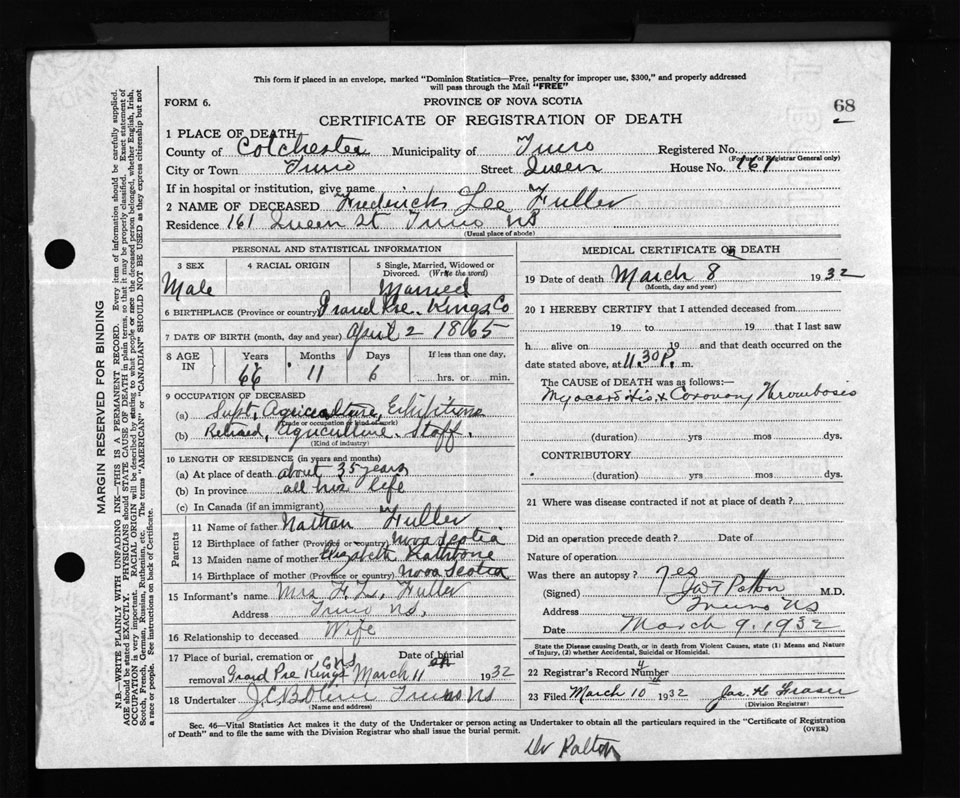 This form if placed in an envelope, marked "Dominion Statistics—Free, penalty for improper use, $300," and properly addressed
will pass through the Mail "FREE"
FORM 6.
PROVINCE OF NOVA SCOTIA
68
CERTIFICATE OF REGISTRATION OF DEATH
1 PLACE OF DEATH
County of Colchester Municipality of Truro Registered No.
(For use of Registrar General only)
City or Town Truro Street Queen House No. 161
If in hospital or institution, give name
2 NAME OF DECEASED Frederick Lee Fuller
Residence 161 Queen St Truro NS
(Usual place of abode)
PERSONAL AND STATISTICAL INFORMATION
3 SEX 4 RACIAL ORIGIN 5 Single, Married, Widowed or
Divorced. (Write the word)
Male Married
6 BIRTHPLACE (Province or country) Grand Pre. Kings Co
7 DATE OF BIRTH (month, day and year) April 2 1865
8 AGE IN Years Months Days If less than one day.
66 11 6 hrs. or min.
9 OCCUPATION OF DECEASED
(a) Supt, Agriculture, Exhibitions
(Trade or occupation or kind of work)
(b) Retired, Agriculture Staff.
(Kind of industry)
10 LENGTH OF RESIDENCE (in years and months)
(a) At place of death about 35 years
(b) In province all his life
(c) In Canada (if an immigrant)
Parents
11 Name of father Nathan Fuller
12 Birthplace of father (Province or country) Nova Scotia
13 Maiden name of mother Elizabeth Rathbone
14 Birthplace of mother (Province or country) Nova Scotia
15 Informant's name Mrs F. L. Fuller
Address Truro NS.
16 Relationship to deceased Wife
17 Place of burial, cremation or Date of burial
removal Grand Pre Kings Co NS March 11 1932
18 Undertaker Truro NS
(Name and address)
MEDICAL CERTIFICATE OF DEATH
19 Date of death March 8 1932
(Month, day and year)
20 I HEREBY CERTIFY that I attended deceased from
19 to 19 that I last saw
h alive on 19 and that death occurred on the
date stated above, at 11.30 P. m.
The CAUSE of DEATH was as follows:—
Myocarditis & Coronary Thrombosis
(duration) yrs mos dys.
CONTRIBUTORY
(duration) yrs mos dys.
21 Where was disease contracted if not at place of death?
Did an operation precede death? Date of
Nature of operation
Was there an autopsy? Yes
(Signed) Patton M.D.
Address Truro NS
Date March 9, 1932
State the Disease causing Death, or in Death from Violent Causes, state (1) Means and Nature
of Injury, (2) whether Accidental, Suicidal or Homicidal.
22 Registrar's Record Number 4
23 Filed March 10 1932 Jas. Fraser
(Division Registrar)
Sec. 46—Vital Statistics Act makes it the duty of the Undertaker or person acting as Undertaker to obtain all the particulars required in the "Certificate of Registration
of Death" and to file the same with the Division Registrar who shall issue the burial permit.
(OVER)
Dr Patton
MARGIN RESERVED FOR BINDING
N.B.—WRITE PLAINLY WITH UNFADING INK—THIS IS A PERMANENT RECORD. Every item of information should be carefully supplied.
AGE should be stated EXACTLY. PHYSICIANS should STATE CAUSE OF DEATH in plain terms, so that it may be properly classified. Exact statement of
OCCUPATION is very important. RACIAL ORIGIN will be described by stating to what people or race the deceased person belonged, whether English, Irish,
Scotch, French, German, Russian, Ruthenian, etc. The terms "AMERICAN" or "CANADIAN" SHOULD NOT BE USED as they express citizenship but not
a race or people. See instructions on back of Certificate.